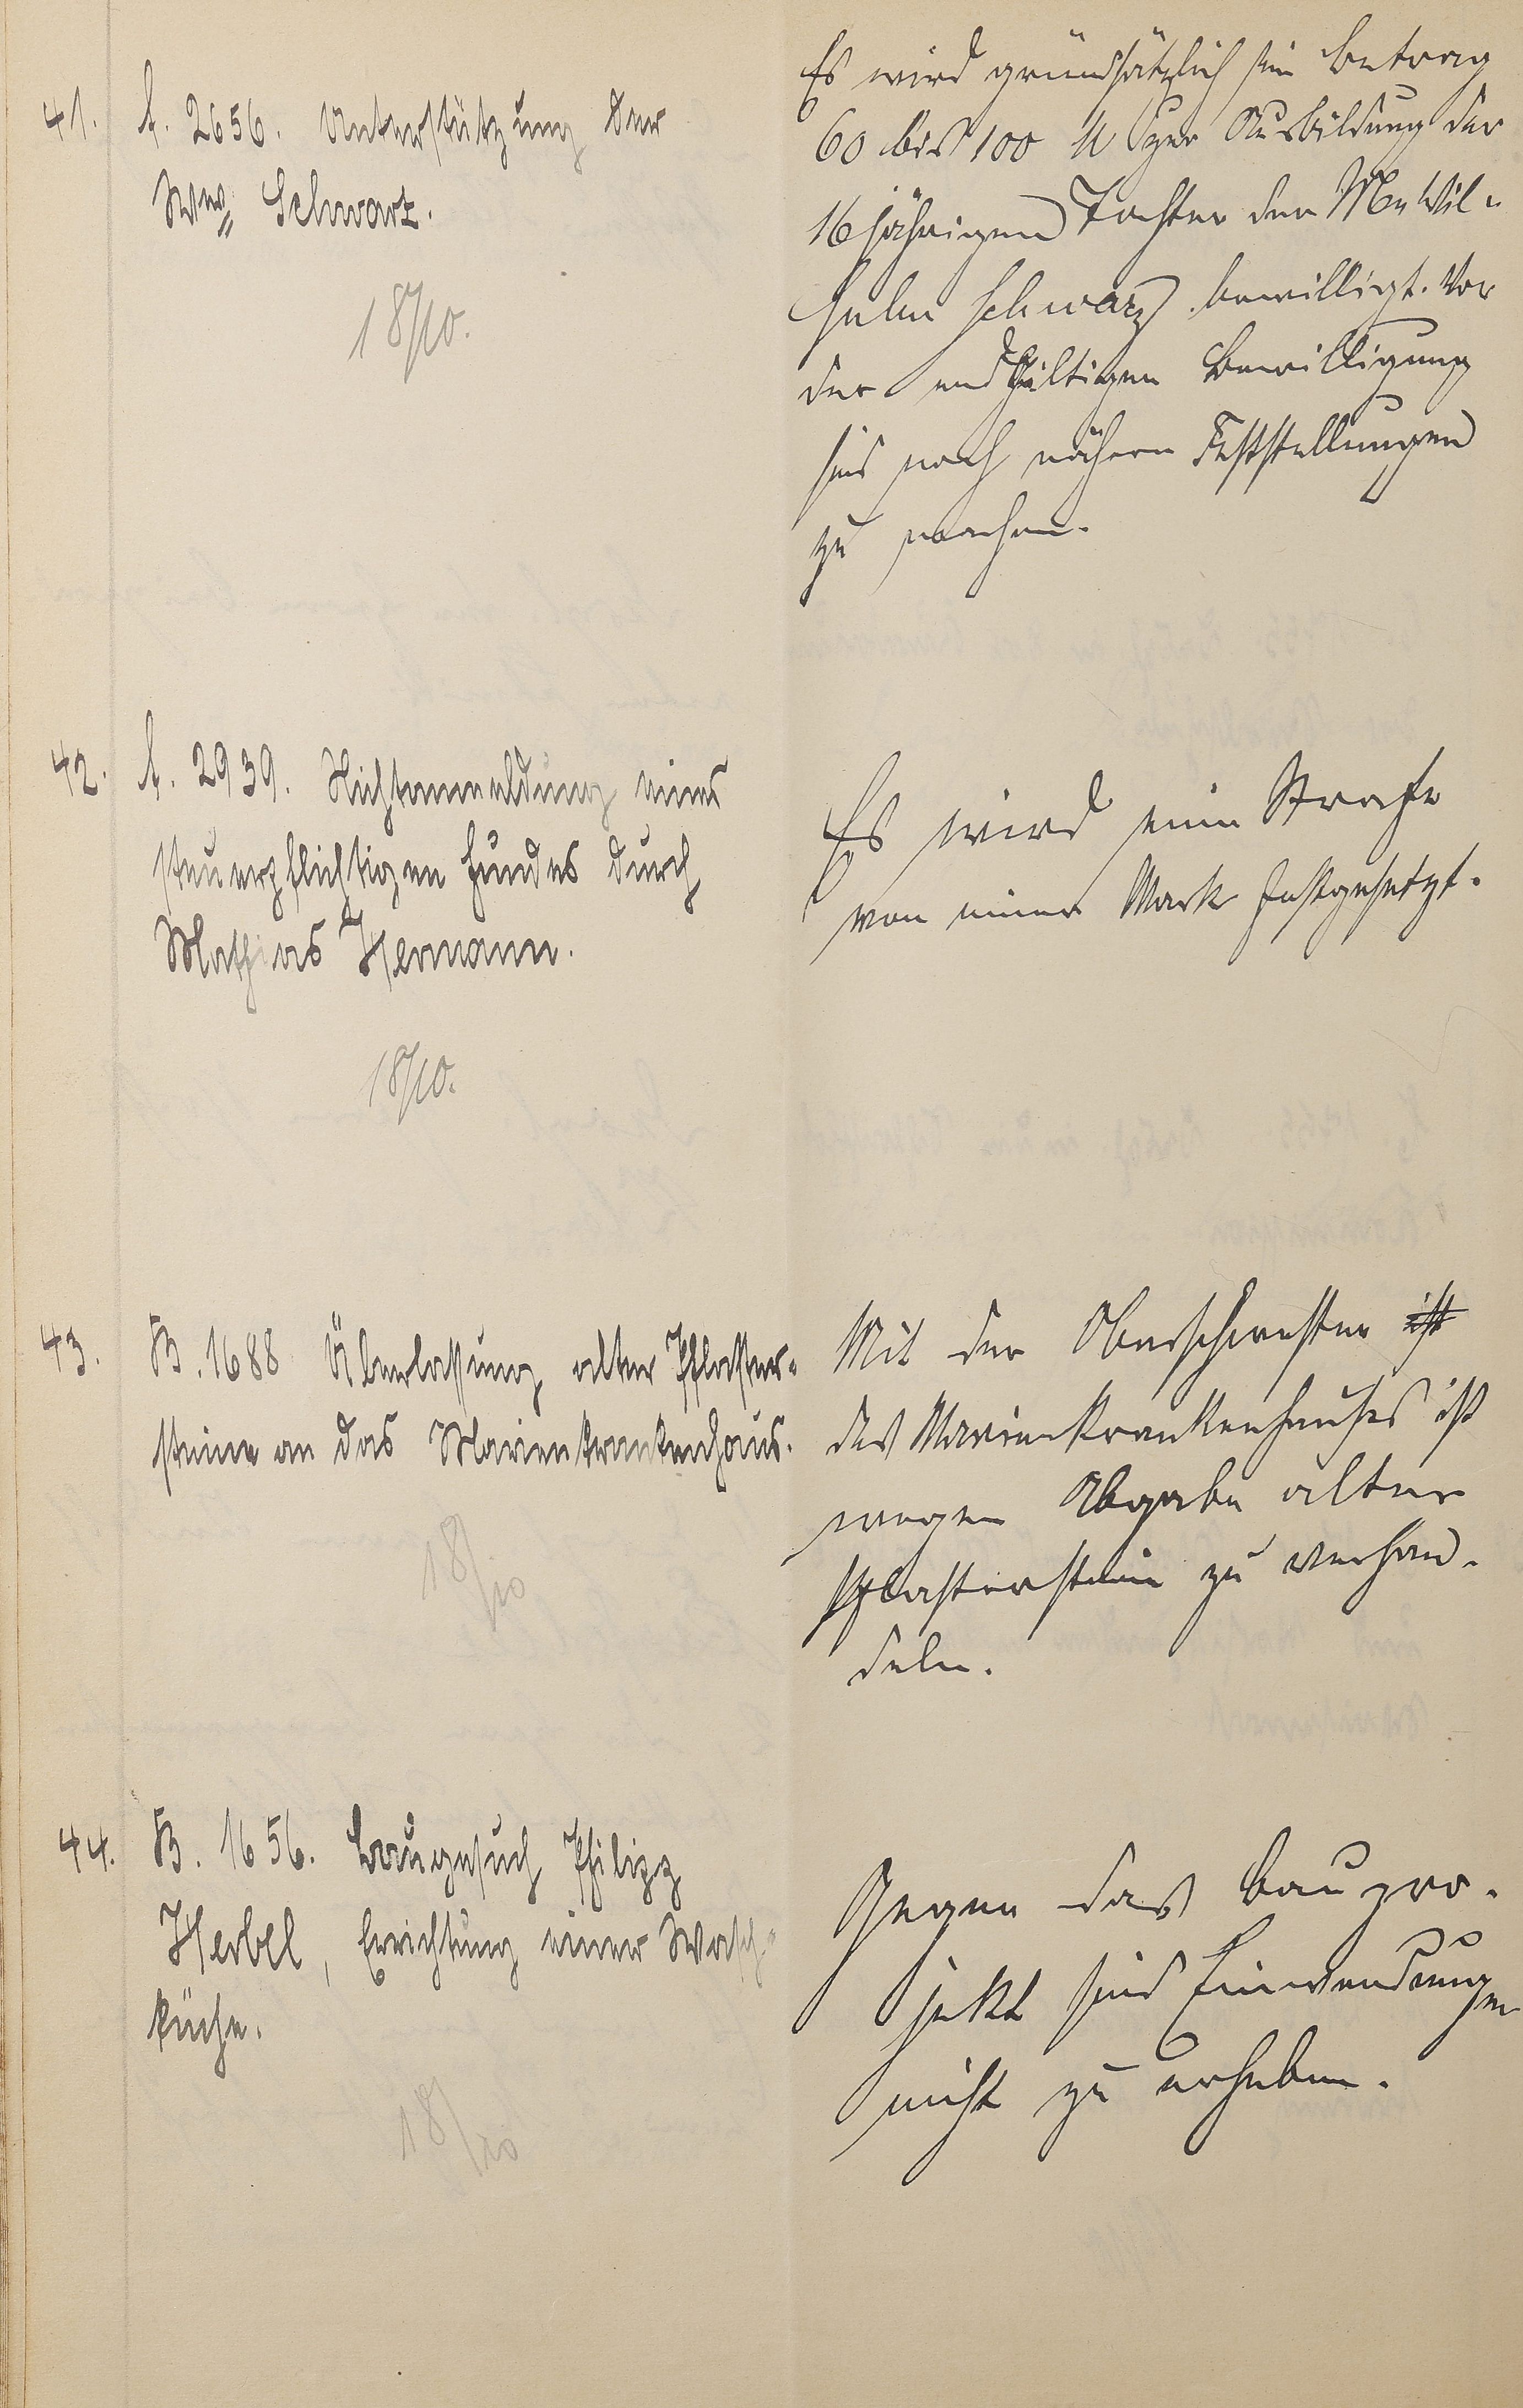 41. A. 2656. Unterstützung der
Wwe. Schwarz.
18/10.
Es wird grundsätzlich ein Betrag
60 bis 100 M zur Ausbildung der
16jährigen Tochter der Ww Wil-
helm Schwarz bewilligt. Vor
der endgültigen Bewilligung
sind noch nähere Feststellungen
zu machen.
42. A. 2939. Nichtanmeldung eines
steuerpflichtigen Hundes durch
Mathias Hermann.
18/10.
Es wird eine Strafe
von einer Mark festgesetzt.
43. B. 1688 Überlassung alter Pflaster-
steine an das Marienkrankenhaus.
18/10
Mit der Oberschwester ist
des Marienkrankenhauses ist
wegen Abgabe alter
Pflastersteine zu verhan-
deln.
44. B. 1656. Baugesuch Philipp
Herbel, Errichtung einer Wasch-
küche.
18/10
Gegen das Baupro-
jekt sind Einwendungen
nicht zu erheben.